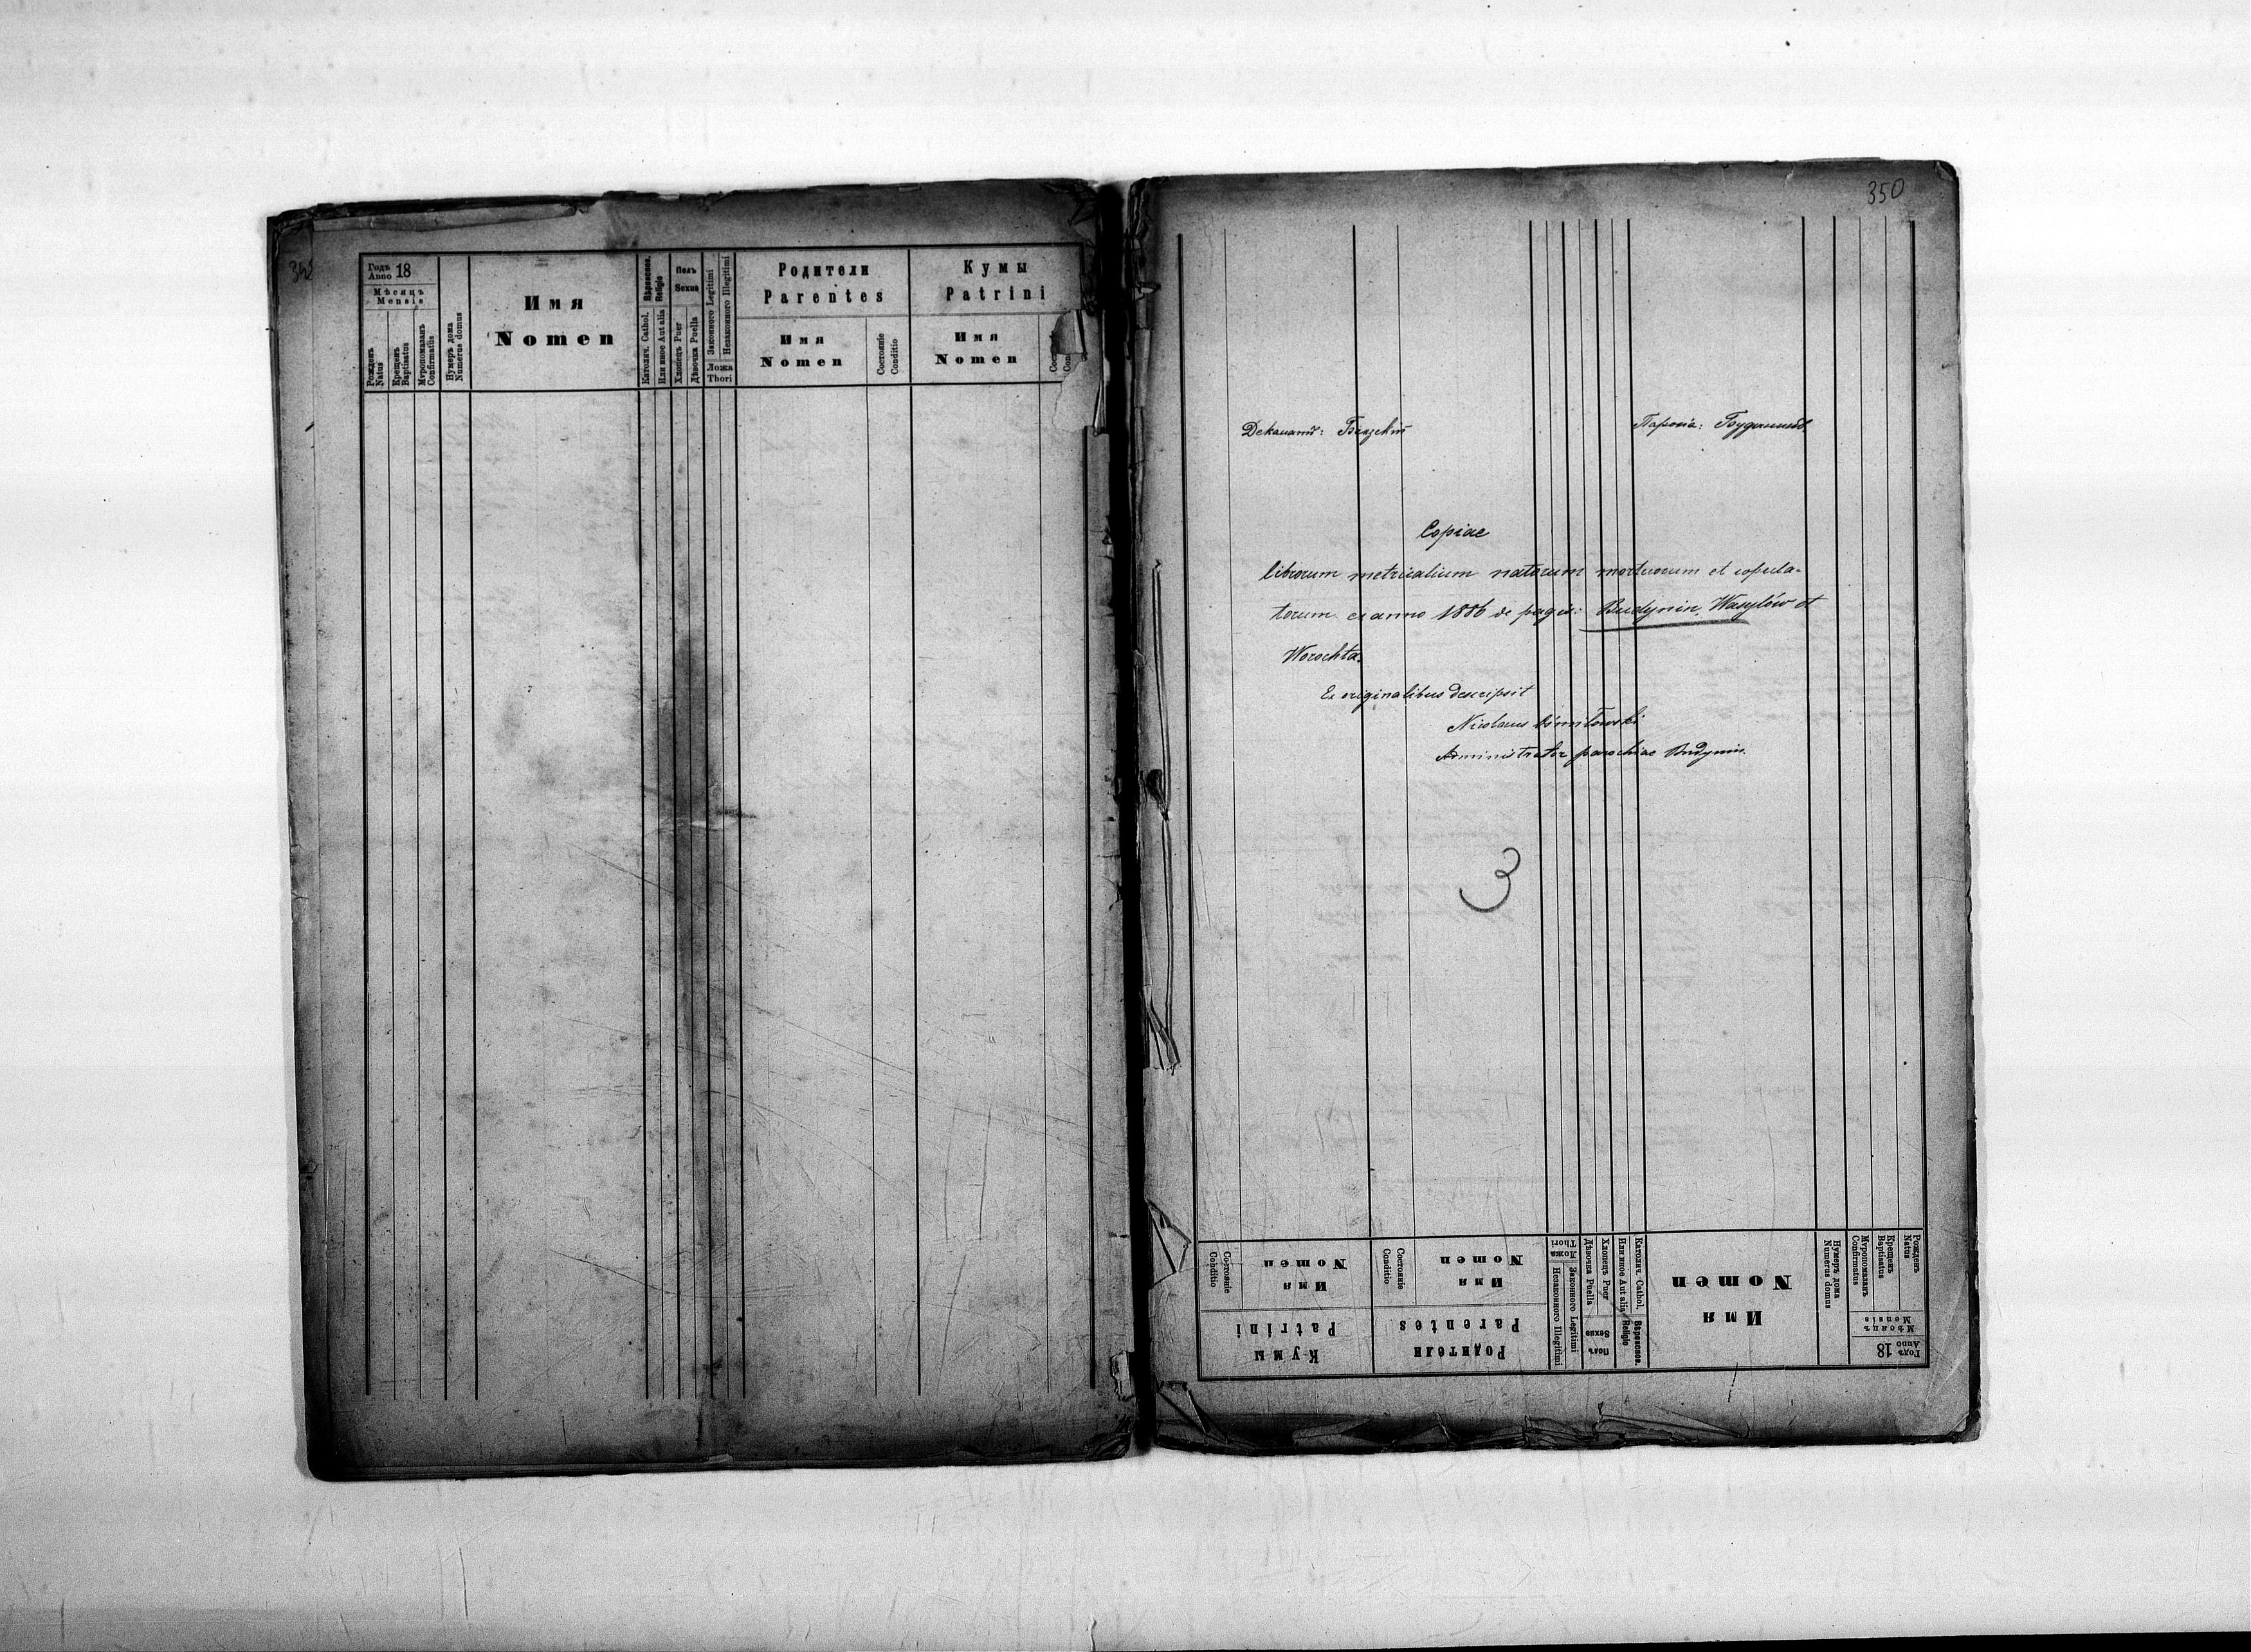 Годъ Anno 18
Мѣсяцъ
Mensis
Рожденъ Natus
Крещенъ Baptisatus
Мѵропомазанъ Confirmatus
Нумеръ дома Numerus domus
Имя
Nomen
Вѣроиспов. Religio
Католич. Cathol.
Или иное Aut alia
Полъ
Sexus
Хлопецъ Puer
Дѣвочка Puella
Законного Legitimi
Незаконного Illegitimi
Ложа
Thori
Родители
Parentes
Имя
Nomen
Состояніе
Conditio
Кумы
Patrini
Имя
Nomen
350
Деканатъ: Белзскій
Парохія:
Copiae
librorum metricalium natorum mortuorum et copula-
torum ex anno 1886 de pagis: Budynin, Wasylów et
Worochta.
Ex originalibus descripsit
Nicolaus
Administrator parochiae Budynin.
3
Состояніе
Conditio
Имя
Nomen
Кумы
Patrini
Состояніе
Conditio
Имя
Nomen
Родители
Parentes
Ложа
Thori
Незаконного Illegitimi
Законного Legitimi
Дѣвочка Puella
Хлопецъ Puer
Полъ
Sexus
Или иное Aut alia
Католич. Cathol.
Вѣроиспов.
Religio
Имя
Nomen
Нумеръ дома
Numerus domus
Мѵропомазанъ
Confirmatus
Крещенъ
Baptisatus
Рожденъ
Natus
Мѣсяцъ
Mensis
Годъ Anno 18